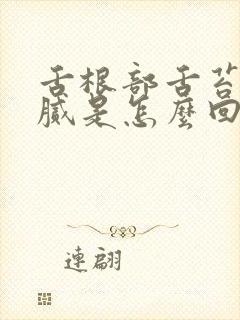 舌根部舌苔
膩是怎麼回
連翩